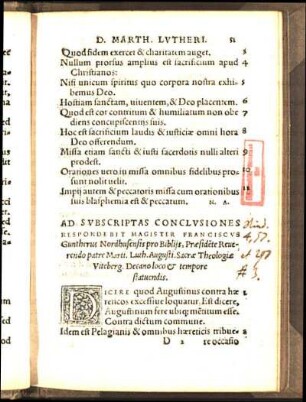 D. MARTH. LVTHERI. 51
Quod fidem exercet & charitatem auget. 3
Nullum prorsus amplius est sacrificium apud 4
Christianos:
Nisi unicum spiritus quo corpora nostra exhi- 5
bemus Deo.
Hostiam sanctam, uiuentem, & Deo placentem. 6
Quod est cor contritum & humiliatum non obe 7
diens concupiscentijs suis.
Hoc est sacrificium laudis & iusticiæ omni hora 8
Deo offerendum.
Missa etiam sancti & iusti sacerdotis nulli alteri 9
prodest.
Orationes uero in missa omnibus fidelibus pro- 10
sunt nolit uelit.
Impij autem & peccatoris missa cum orationibus 11
suis blasphemia est & peccatum. N. A.
AD SVBSCRIPTAS CONCLVSIONES
RESPONDEBIT MAGISTER FRANCISCVS
Guntherus Nordhusensis pro Biblijs, Præsidēte Reue-
rendo patre Marti. Luth. Augusti. Sacræ Theologiæ
Viteberg. Decano loco & tempore
statuendis.
DICERE quod Augustinus contra hæ
reticos excessiue loquatur. Est dicere,
Augustinum fere ubiq; mētitum esse.
Contra dictum commune.
Idem est Pelagianis & omnibus hæreticis tribue- 2
D 2 re occasio